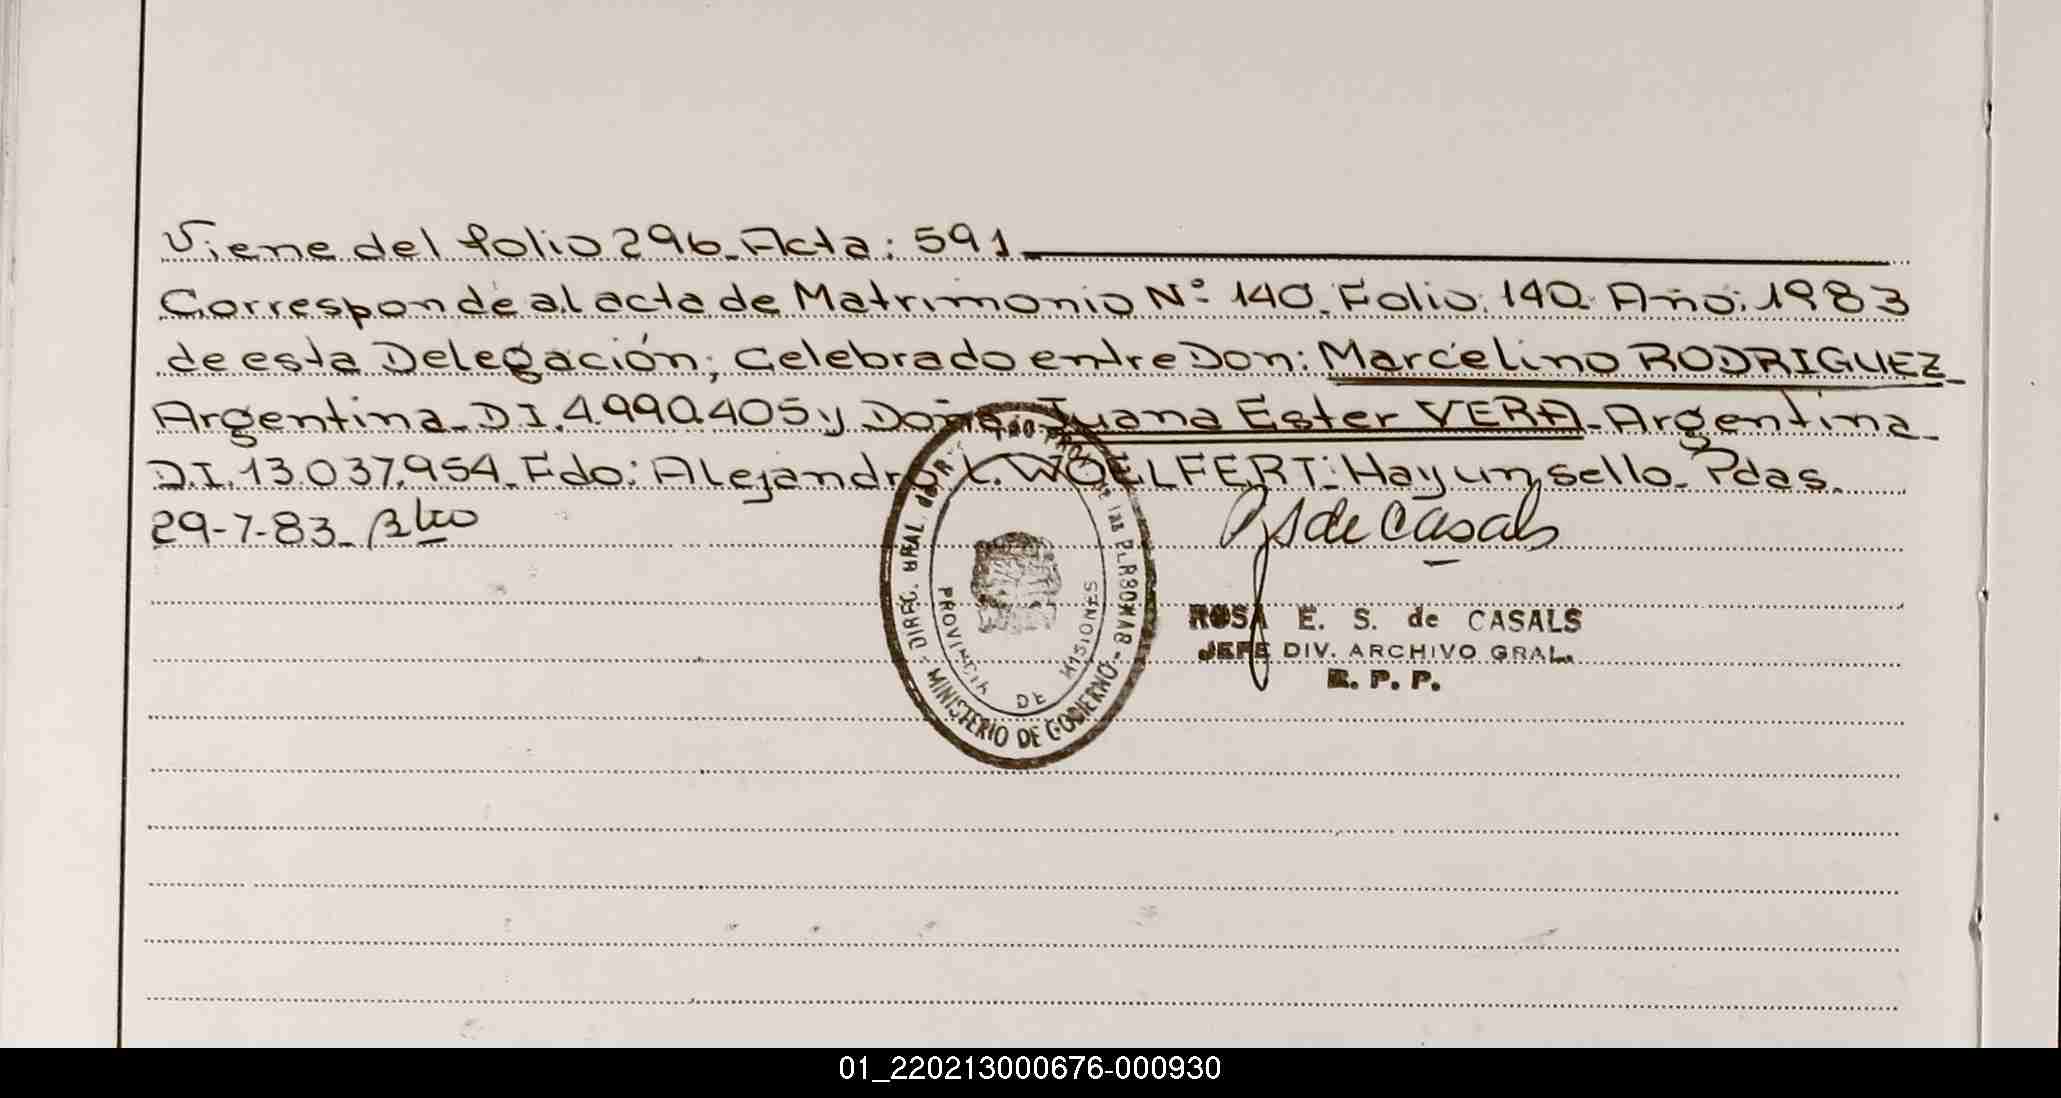 Viene del folio 296. Acta: 591
Corresponde al acta de Matrimonio N° 140. Folio: 140. Año: 1983
de esta Delegación; Celebrado entre Don: Marcelino RODRIGUEZ
Argentina. D.I. 4.990.405 y Doña: Juana Ester VERA. Argentina.
D.I. 13.037.954. Fdo: Alejandro L. WOELFERT: Hay un sello. Pdas.
29-7-83.
de Casals
ROSA E. S. de CASALS
JEFE DIV. ARCHIVO GRAL.
R. P. P.
DIREC. GRAL. de las PERSONAS
MINISTERIO DE GOBIERNO
PROVINCIA DE MISIONES
01_220213000676-000930